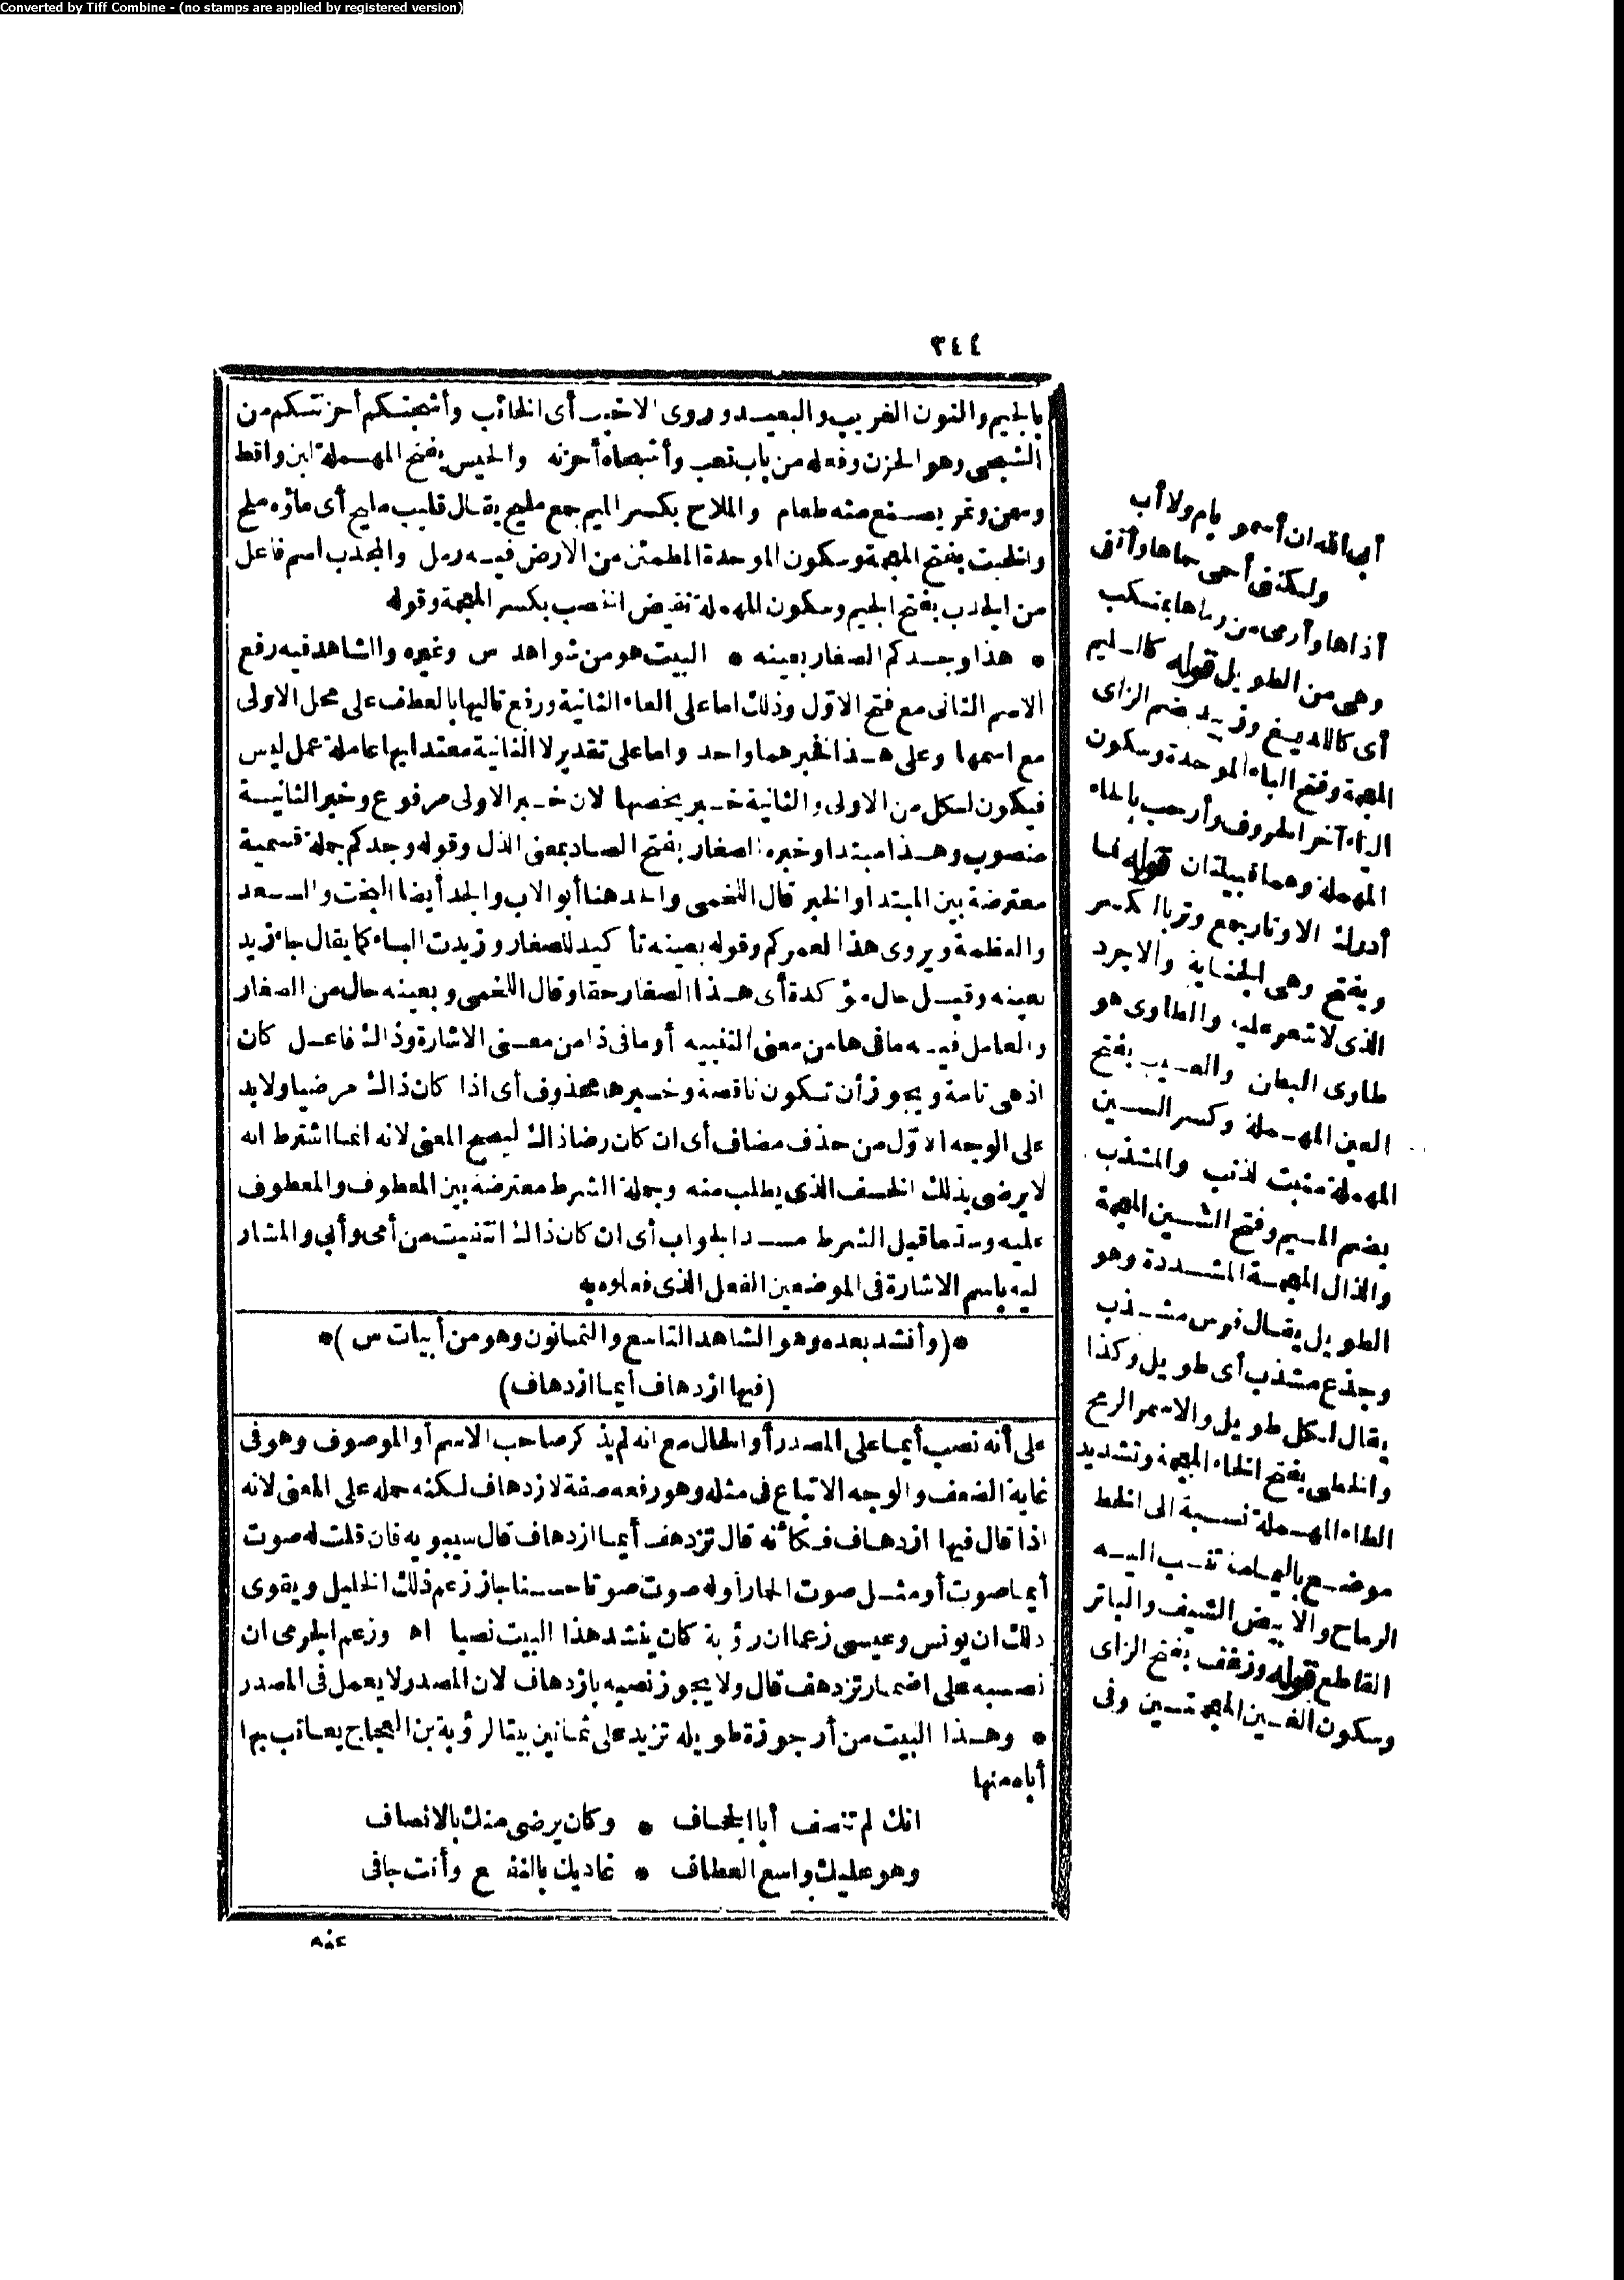 Converted by Tiff Combine - (no stamps are applied by registered version)
٣٤٤
بالجيم والنون الغريب والبعيد وروى الاخيب أى الخائب وأشجتكم أحزنتكم من
الشجى وهو الحزن وفعله من باب تعب وأشجاه أحزنه والحيس بفتح المهملة لبن واقط
وسمن وتمر يصنع منه طعام والملاح بكسر الميم جمع مليح يقال قليب مليح أى ماؤه ملح
والخبت بفتح المعجمة وسكون الموحدة المطمئن من الارض فيه رمل والمجدب اسم فاعل
من الجدب بفتح الجيم وسكون المهملة نقيض الخصب بكسر المعجمة وقوله
* هذا وجدكم الصغار بعينه * البيت هو من شواهد س وغيره والشاهد فيه رفع
الاسم الثانى مع فتح الاول وذلك اما على الغاء الثانية ورفع تاليها بالعطف على محل الاولى
مع اسمها وعلى هذا فخبرهما واحد واما على تقدير لا الثانية معتدا بها عاملة عمل ليس
فيكون لكل من الاولى والثانية خبر يخصها لان خبر الاولى مرفوع وخبر الثانية
منصوب وهذا مبتدا وخبره الصغار بفتح الصاد بمعنى الذل وقوله وجدكم جملة قسمية
معترضة بين المبتدا والخبر قال اللخمى والجد هنا أبو الاب والجد أيضا البخت والسعد
والعظمة ويروى هذا لعمركم وقوله بعينه تأكيد للصغار وزيدت الباء كما يقال جاء زيد
بعينه وقيل حال مؤكدة أى هذا الصغار حقا وقال اللخمى وبعينه حال من الصغار
والعامل فيه مافى ها من معنى التنبيه أو مافى ذا من معنى الاشارة وذاك فاعل كان
اذ هى تامة ويجوز أن تكون ناقصة وخبرها محذوف أى اذا كان ذاك مرضيا ولا بد
على الوجه الاول من حذف مضاف أى ان كان رضا ذاك ليصح المعنى لانه انما اشترط انه
لا يرضى بذلك الخسف الذى يطلب منه وجملة الشرط معترضة بين المعطوف والمعطوف
عليه وسد ماقبل الشرط مسد الجواب أى ان كان ذاك انتفيت من أمى وأبى والمشار
ليه باسم الاشارة فى الموضعين الفعل الذى فعلوه به
*(وأنشد بعده وهو الشاهد التاسع والثمانون وهو من أبيات س)*
(فيها ازدهاف أيما ازدهاف)
على أنه نصب أيما على المصدر أو الحال مع انه لم يذكر صاحب الاسم أو الموصوف وهو فى
غاية الضعف والوجه الاتباع فى مثله وهو رفعه صفة لازدهاف لكنه حمله على المعنى لانه
اذا قال فيها ازدهاف فكأنه قال تزدهف أيما ازدهاف قال سيبويه فان قلت له صوت
أيما صوت أو مثل صوت الحمار أو له صوت صوتا حسنا جاز زعم ذلك الخليل ويقوى
ذلك ان يونس وعيسى زعما ان رؤبة كان ينشد هذا البيت نصبا اه وزعم الجرمى ان
نصبه على اضمار تزدهف قال ولا يجوز نصبه بازدهاف لان المصدر لا يعمل فى المصدر
* وهذا البيت من أرجوزة طويله تزيد على ثمانين بيتا لرؤبة بن العجاج يعاتب بها
أباه منها
انك لم تنصف أبا الجحاف * وكان يرضى منك بالانصاف
وهو عليك واسع العطاف * غاديك بالنفع وأنت جافى
عنه
أبى الله ان أسمو بام ولا أب
ولكننى أحمى حماها وأتقى
أذاها وأرمى من رماها بمنكب
وهى من الطويل قوله كالسليم
أى كاللديغ وزبيد بضم الزاى
المعجمة وفتح الباء الموحدة وسكون
الياء آخر الحروف وأرحب بالحاء
المهملة وهما قبيلتان قوله لما
أدرك الاوتار جمع وتر بالكسر
ويفتح وهى الجناية والاجرد
الذى لا شعر عليه والطاوى هو
طاوى البطن والعسيب بفتح
العين المهملة وكسر السين
المهملة منبت الذنب والمشذب
بضم الميم وفتح الشين المعجمة
والذال المعجمة المشددة وهو
الطويل يقال فرس مشذب
وجذع مشذب أى طويل وكذا
يقال لكل طويل والاسمر الرمح
والخطى بفتح الخاء المعجمة وتشديد
الطاء المهملة نسبة الى الخط
موضع باليمامة تنسب اليه
الرماح والابيض السيف والباتر
القاطع قوله وزغف بفتح الزاى
وسكون الغين المعجمتين وفى